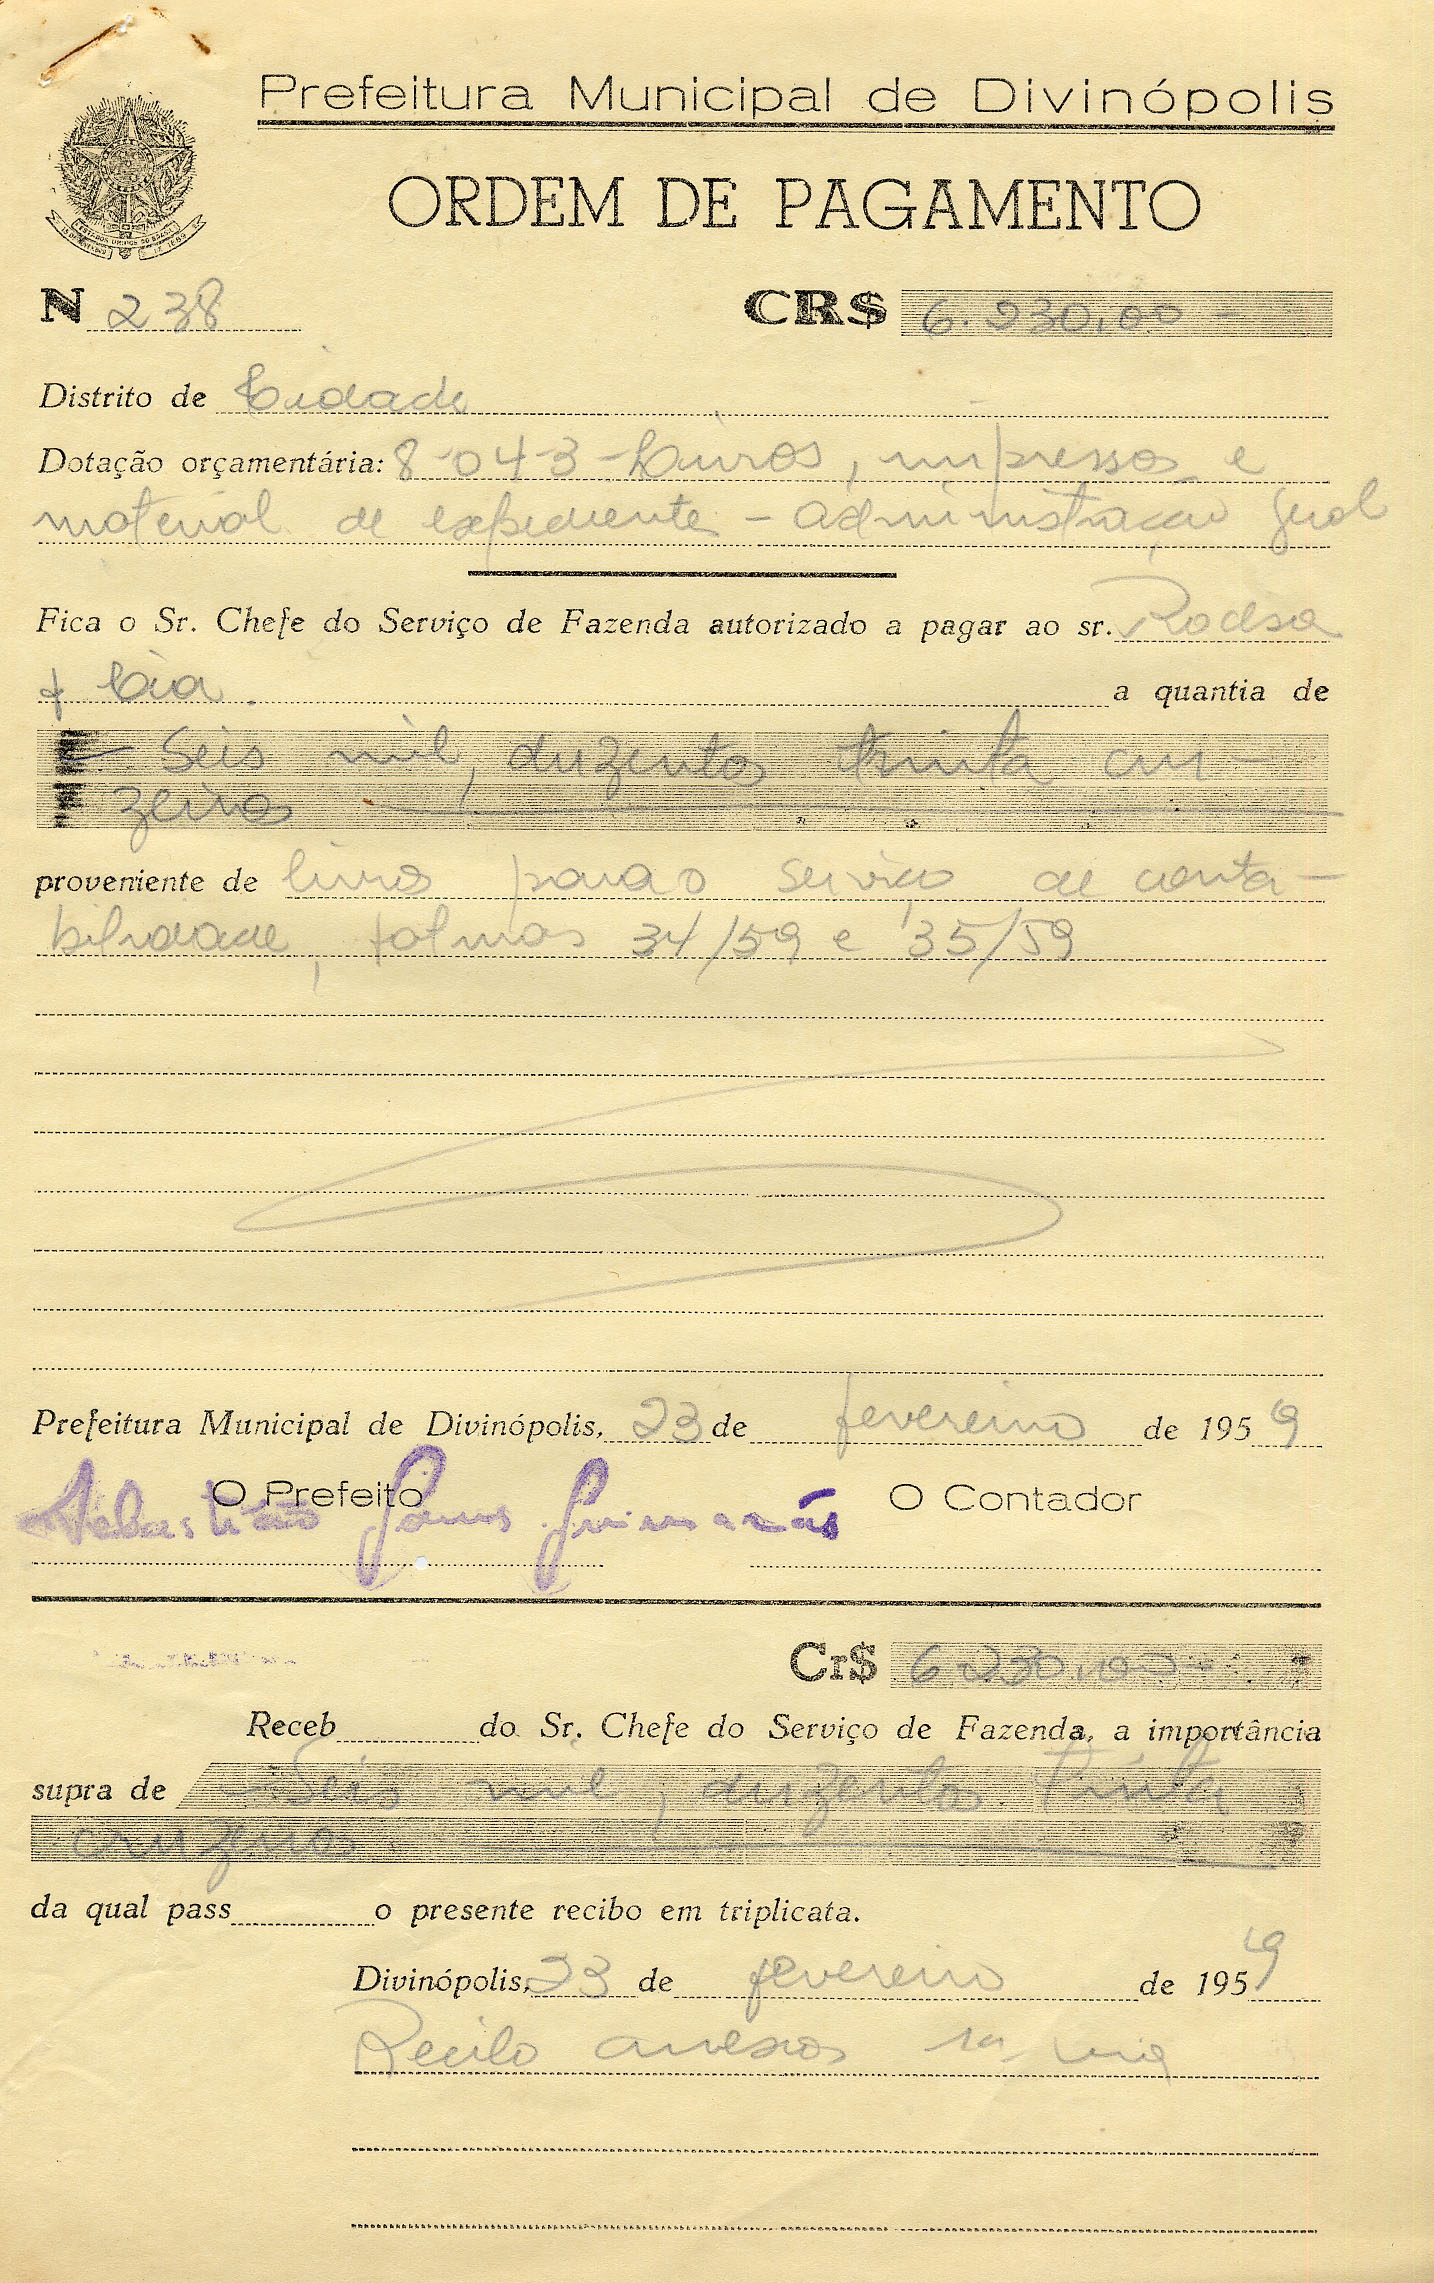 Prefeitura Municipal de Divinópolis
ORDEM DE PAGAMENTO
ESTADOS UNIDOS DO BRASIL
N 238 CR$ 6.230,00 -
Distrito de Cidade
Dotação orçamentária: 8-04-3 - Livros, impressos e
material de expediente - administração geral
Fica o Sr. Chefe do Serviço de Fazenda autorizado a pagar ao sr.
& Cia. a quantia de
- Seis mil, duzentos trinta cru-
zeiros
proveniente de livros para o serviço de conta-
bilidade, folmas 34/59 e 35/59
Prefeitura Municipal de Divinópolis, 23 de fevereiro de 1959
O Prefeito O Contador
Sebastião Gomes Guimarães
Cr$ 6.230,00 -
Receb do Sr. Chefe do Serviço de Fazenda, a importância
supra de Seis mil, duzentos trinta
cruzeiros
da qual pass o presente recibo em triplicata.
Divinópolis, 23 de fevereiro de 1959
Recibo anexos 1a. via